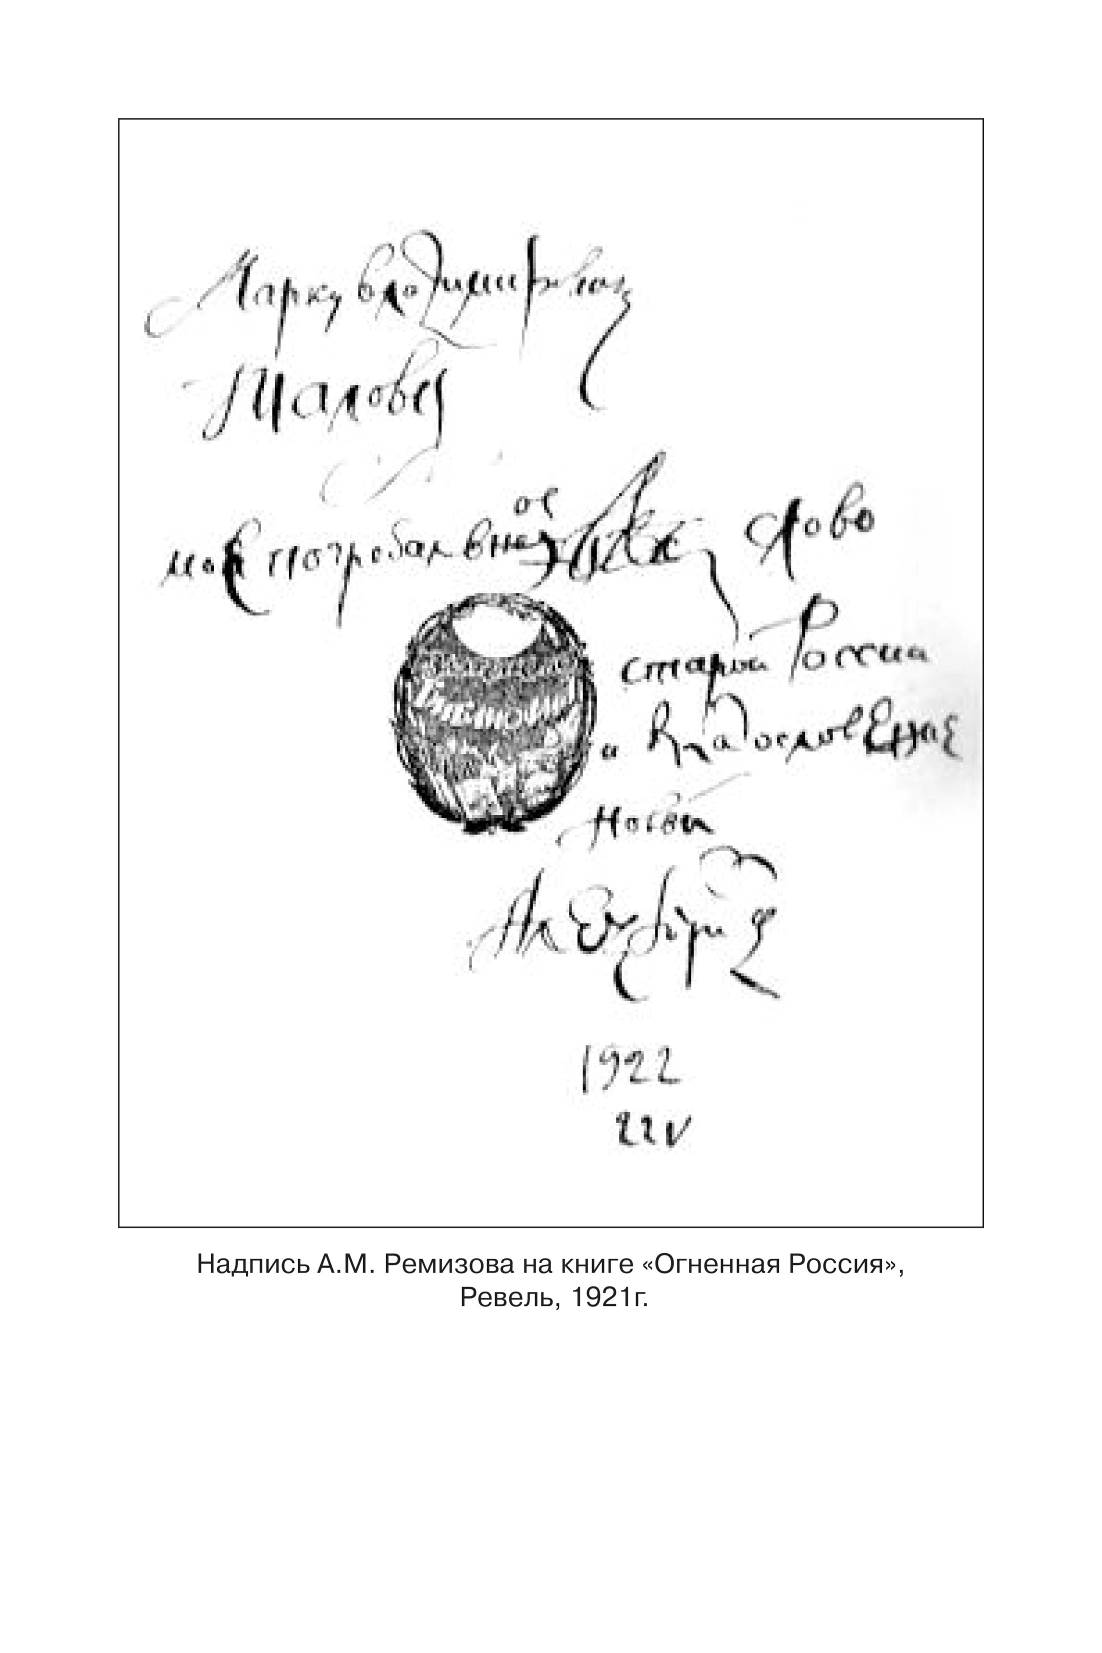 Марку Владимировичу
Талову
ое
мое погребальное слово
старой России
и благословение
новой
Алексей Ремизов
1922
22 V
Надпись А.М. Ремизова на книге «Огненная Россия»,
Ревель, 1921г.